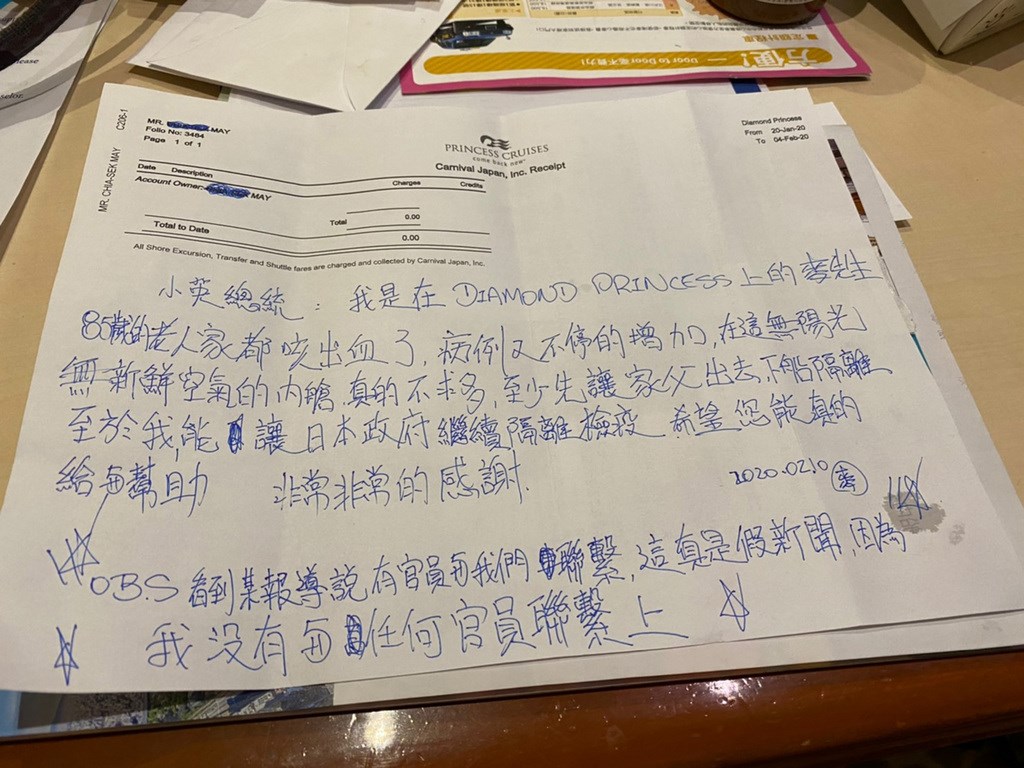 方便!
Door to Door毫不費力!
MR. MAY
Folio No: 3484
Page 1 of 1
C206-1
MR. CHIA-SEK MAY
PRINCESS CRUISES
come back new
Carnival Japan, Inc. Receipt
Diamond Princess
From 20-Jan-20
To 04-Feb-20
Date Description Charges Credits
Account Owner: MAY
Total 0.00
Total to Date 0.00
All Shore Excursion, Transfer and Shuttle fares are charged and collected by Carnival Japan, Inc.
小英總統：我是在 DIAMOND PRINCESS 上的麥先生
85歲的老人家都咳出血了，病例又不停的增加，在這無陽光
無新鮮空氣的內艙 真的不求多，至少先讓家父出去，下船隔離
至於我，能讓日本政府繼續隔離檢疫 希望您能真的
給与幫助 非常非常的感謝.
2020.0210 麥
OB.S 看到某報導説有官員与我們聯繫，這真是假新聞，因為
我沒有与任何官員聯繫上